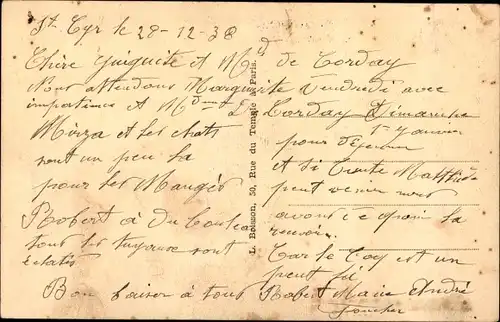 St. Cyr le 28-12-38
Chère Guiguite et Md de Torday
Nous attendons Marguerite Vendredi avec
impatience et Md de Torday Dimanche
1er janvier
pour déjeuner
Mirza et les chats
sont un peu la
pour les Manger
Robert a du Couteau
tous les tuyaux sont
éclatés
Bon baiser a tous
et si Tante Mathilde
peut venir nous
avons ce quoin la
recevoir
Car le Coq est un
peut
Robert Marie André
L. Boisson, 50, Rue du Temple à Paris.